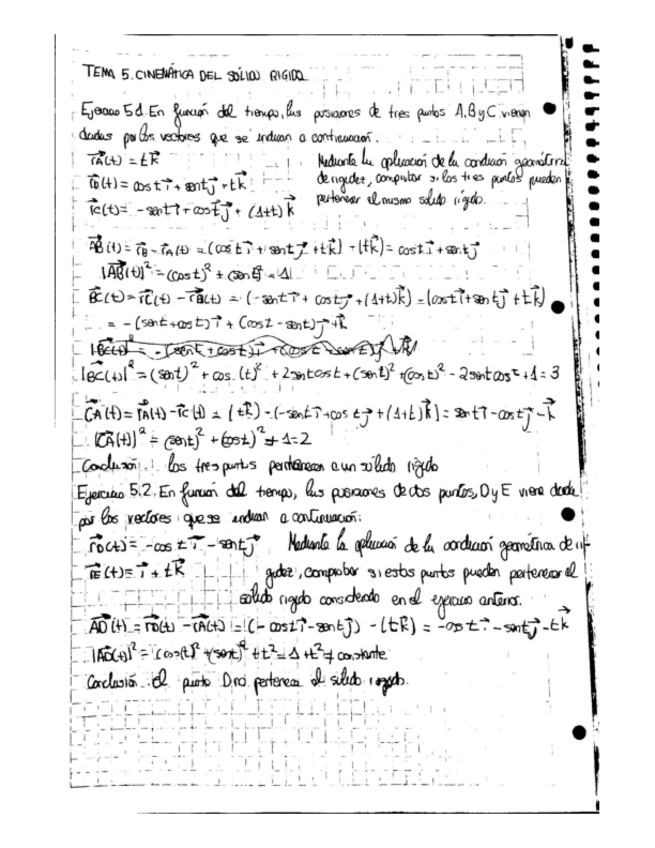 TEMA 5. CINEMÁTICA DEL SÓLIDO RIGIDO
Ejercicio 5.1. En función del tiempo, las posiciones de tres puntos A, B y C vienen
dadas por los vectores que se indican a continuación.
r⃗A(t) = tk⃗
Mediante la aplicación de la condición geométrica
r⃗B(t) = cos t i⃗ + sent j⃗ + tk⃗
de rigidez, comprobar si los tres puntos pueden
r⃗C(t) = -sent i⃗ + cos t j⃗ + (1+t) k⃗
pertenecer al mismo solido rígido.
A⃗B(t) = r⃗B - r⃗A(t) = (cos t i⃗ + sent j⃗ + tk⃗) - (tk⃗) = cos t i⃗ + sen t j⃗
|A⃗B(t)|² = (cos t)² + (sen t)² = 1
B⃗C(t) = r⃗C(t) - r⃗B(t) = (-sent i⃗ + cos t j⃗ + (1+t)k⃗) - (cos t i⃗ + sen t j⃗ + tk⃗)
= -(sent + cos t) i⃗ + (cos t - sent) j⃗ + k⃗
|BC(t)|² = (sent)² + cos (t)² + 2sent cos t + (sen t)² + (cos t)² - 2sent cos t + 1 = 3
C⃗A(t) = r⃗A(t) - r⃗C(t) = (tk⃗) - (-sent i⃗ + cos t j⃗ + (1+t) k⃗) = sent i⃗ - cos t j⃗ - k⃗
|C⃗A(t)|² = (sent)² + (cos t)² + 1 = 2
Conclusión: los tres puntos pertenecen a un sólido rígido
Ejercicio 5.2. En función del tiempo, las posiciones de dos puntos, D y E viene dada
por los vectores que se indican a continuación:
r⃗D(t) = -cos t i⃗ - sent j⃗ Mediante la aplicación de la condición geométrica de ri-
r⃗E(t) = i⃗ + tk⃗ gidez, comprobar si estos puntos pueden pertenecer al
sólido rigido considerado en el ejercicio anterior.
A⃗D(t) = r⃗D(t) - r⃗A(t) = (-cos t i⃗ - sent j⃗) - (tk⃗) = -cos t i⃗ - sent j⃗ - tk⃗
|A⃗D(t)|² = (cos t)² + (sent)² + t² = 1 + t² ≠ constante
Conclusión: el punto D no pertenece al sólido rígido.